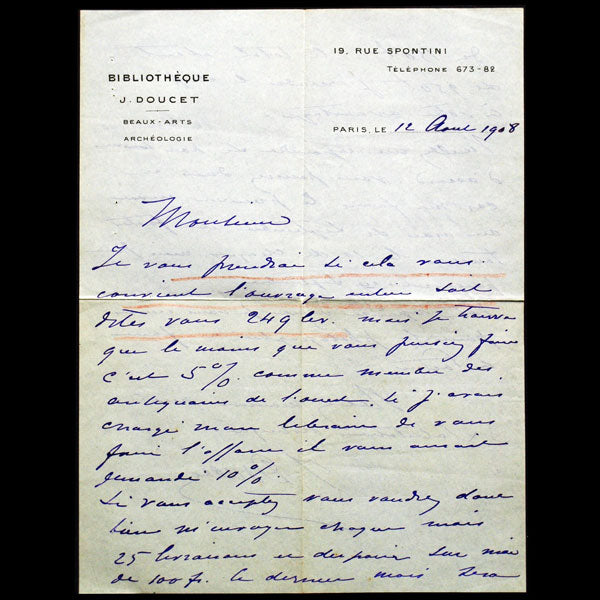 BIBLIOTHÈQUE
J. DOUCET
BEAUX-ARTS
ARCHÉOLOGIE
19, RUE SPONTINI
TÉLÉPHONE 673-82
PARIS, LE 12 Aout 1908
Monsieur
Je vous prendrai si cela vous
convient l'ouvrage entier soit
dites vous 249 liv. mais je trouve
que le moins que vous puissiez faire
c'est 5% comme membre des
antiquaires de l'ouest. Si j'avais
chargé mon libraire de vous
faire l'affaire il vous aurait
demandé 10%.
Si vous acceptez vous voudrez donc
bien m'envoyer chaque mois
25 livraisons et disposer sur moi
de 100 fr. le dernier mois sera